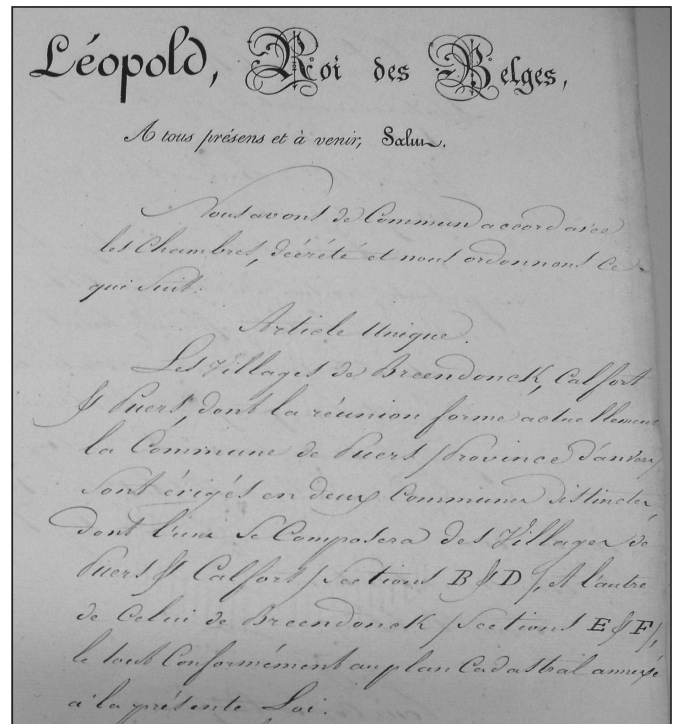 Léopold, Roi des Belges,
A tous présens et à venir, Salut.
Nous avons de Commun accord avec
les Chambres, décrété et nous ordonnons ce
qui suit:
Article Unique.
Les Villages de Breendonck, Calfort
& Puers, dont la réunion forme actuellement
la Commune de Puers (province d'anvers)
sont érigés en deux Communes distinctes,
dont l'une se Composera des Villages de
Puers & Calfort (sections B & D), et l'autre
de Celui de Breendonck (sections E & F),
le tout Conformément au plan Cadastral annexé
à la présente Loi.